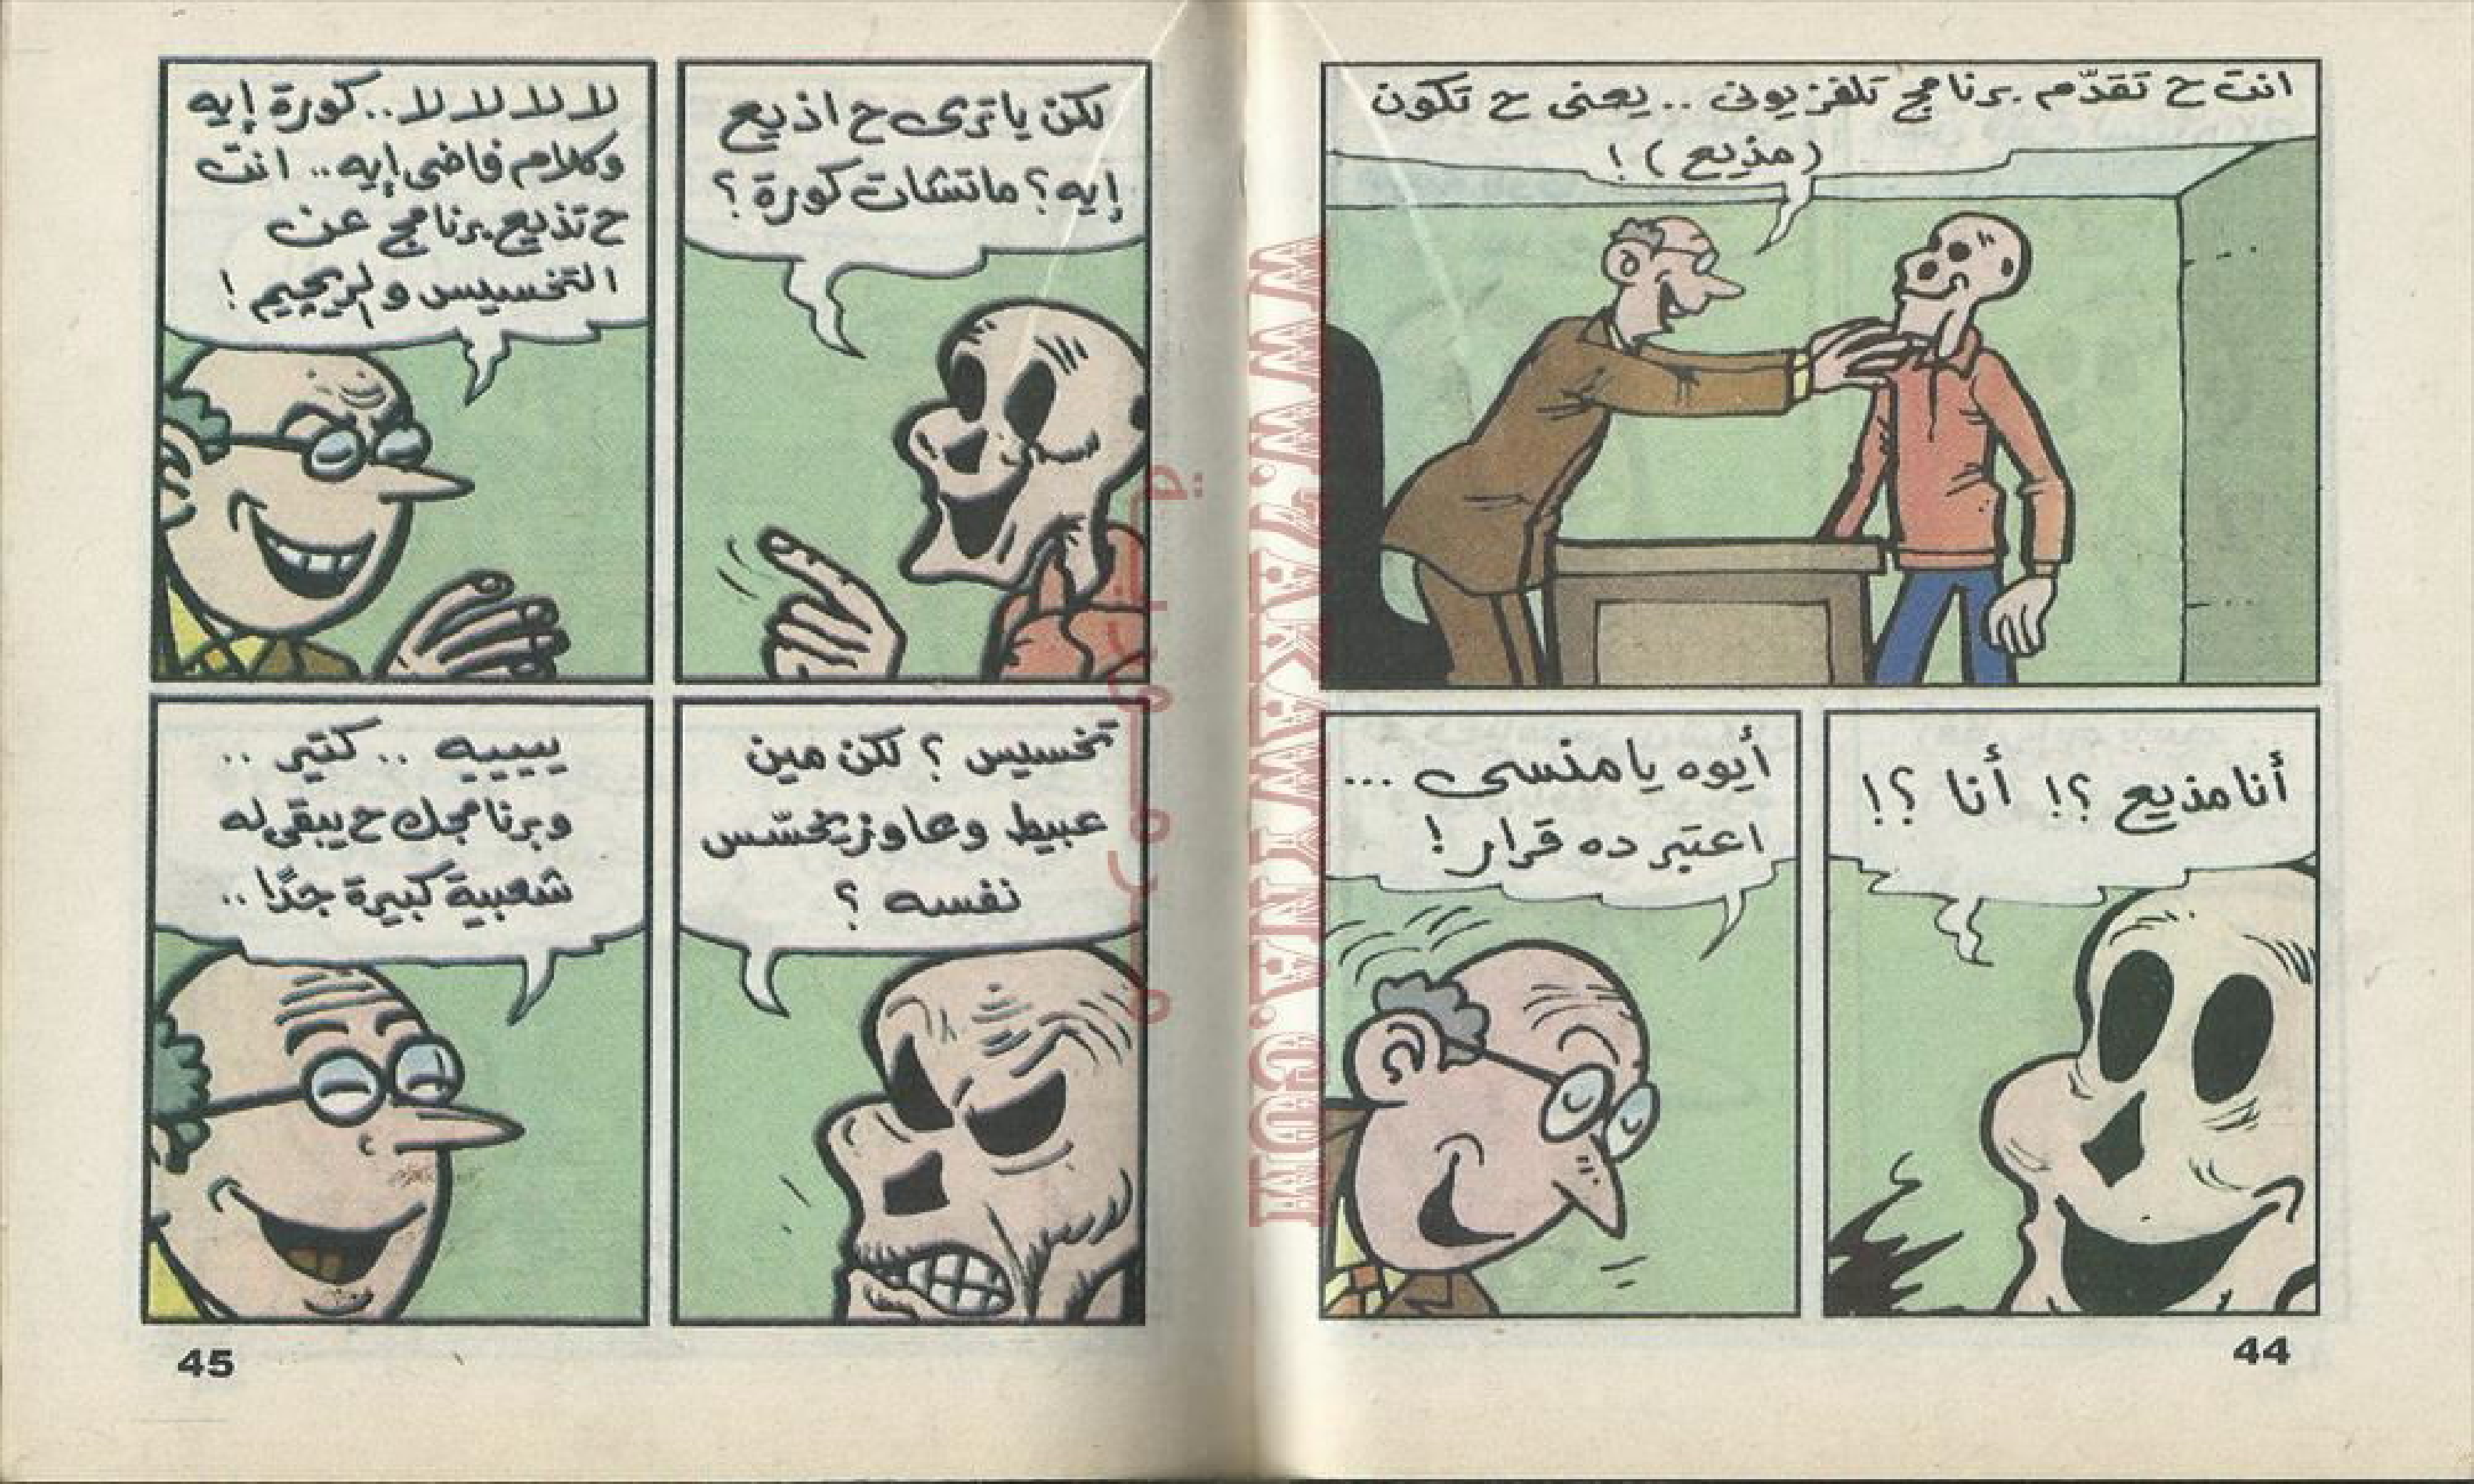 انت ح تقدّم برنامج تلفزيونى .. يعنى ح تكون
(مذيع) !
أنا مذيع ؟! أنا ؟!
أيوه يا منسى ...
اعتبر ده قرار !
44
لكن يا ترى ح اذيع
إيه ؟ ماتشات كورة ؟
لا لا لا لا لا .. كورة إيه
وكلام فاضى إيه .. انت
ح تذيع برنامج عن
التخسيس والريجيم !
تخسيس ؟ لكن مين
عبيط وعاوز يخسّس
نفسه ؟
ييييييه .. كتير ..
وبرنامجك ح يبقى له
شعبية كبيرة جدًا ..
45